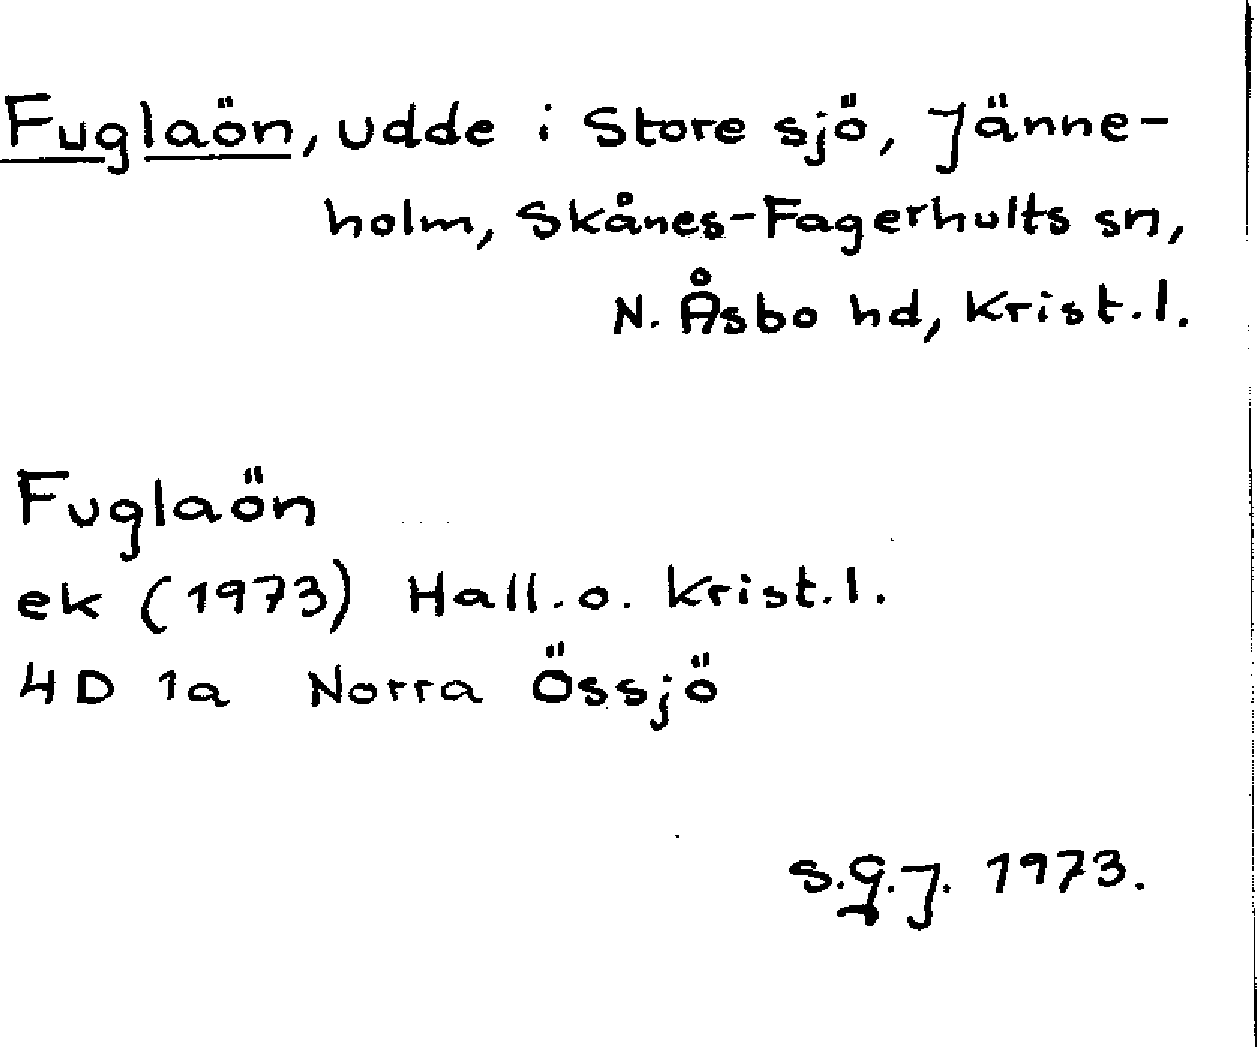 Fuglaön, udde i Store sjö, Jänne-
holm, Skånes-Fagerhults sn,
N. Åsbo hd, Krist.l.
Fuglaön
ek (1973) Hall. o. Krist.l.
4D 1a Norra Össjö
S.G.J. 1973.